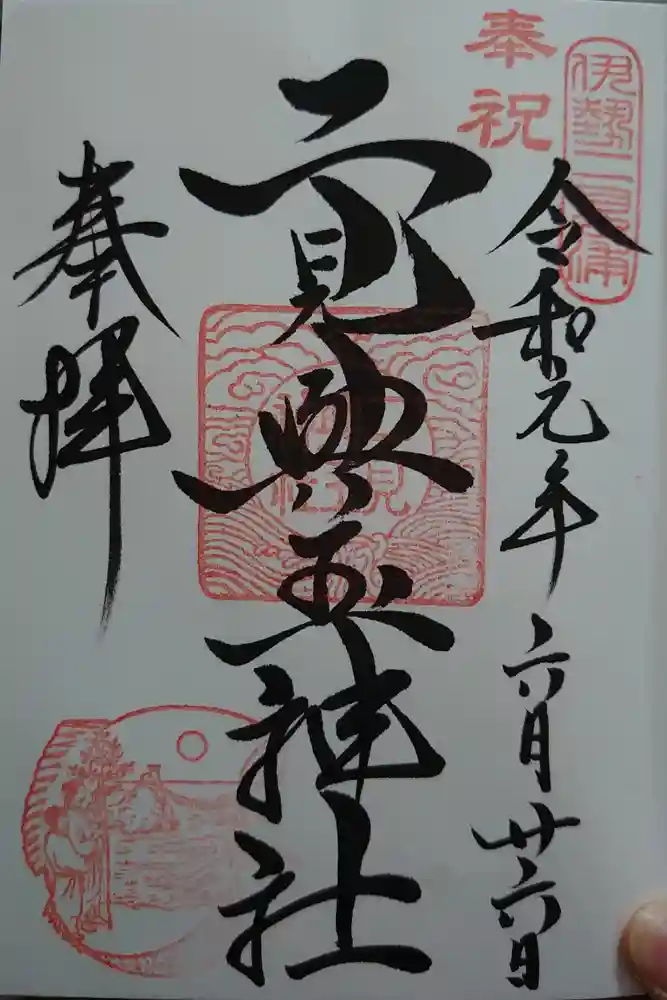 奉祝
伊勢二見浦
令和元年六月廿六日
二見興玉神社
奉拝